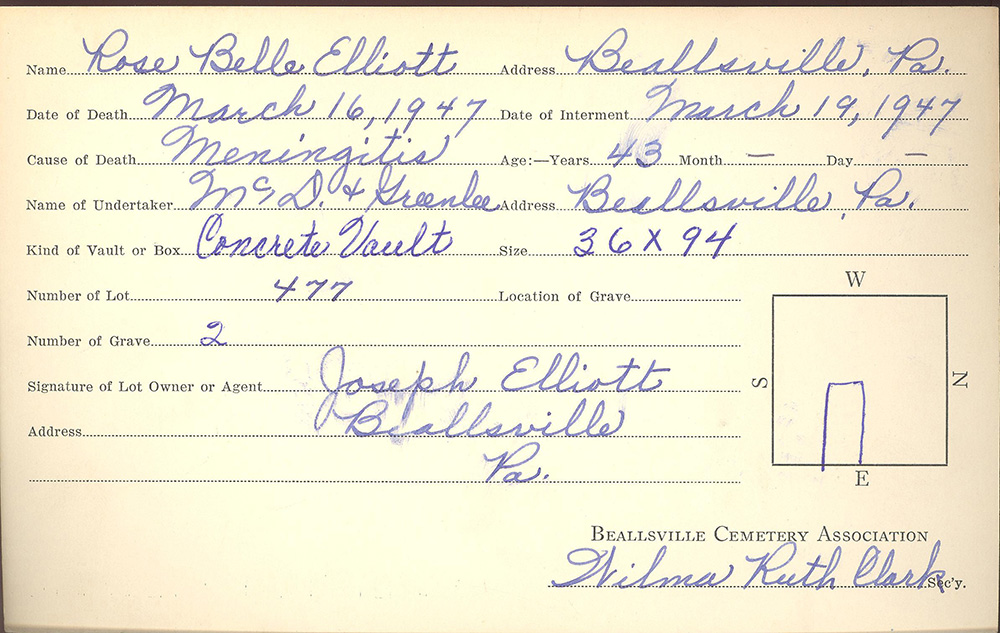 Name Rose Belle Elliott Address Beallsville, Pa.
Date of Death March 16, 1947 Date of Interment March 19, 1947
Cause of Death Meningitis Age:—Years 43 Month — Day —
Name of Undertaker McD. & Greenlee Address Beallsville, Pa.
Kind of Vault or Box Concrete Vault Size 36 X 94
Number of Lot 477 Location of Grave
W
Number of Grave 2
Signature of Lot Owner or Agent Joseph Elliott
S N
Address Beallsville
Pa.
E
BEALLSVILLE CEMETERY ASSOCIATION
Wilma Ruth Clark Sec'y.